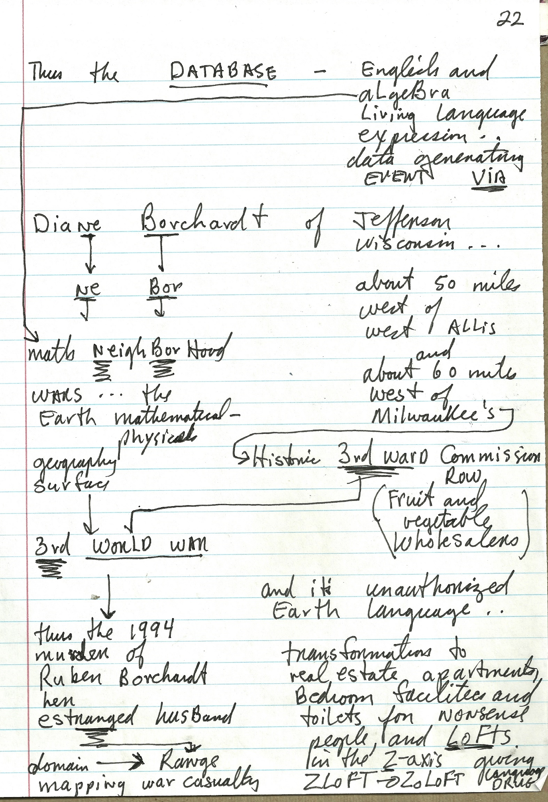 22
Thus the DATABASE – English and
aLgeBra
Living Language
expression...
data generating
EVENT VIA
Diane Borchardt of Jefferson
Wisconsin...
Ne Bor
about 50 miles
west of
west ALLIS
and
about 60 miles
west of
Milwaukee's
math NeighBorHood
wars ... the
Earth mathematical-
physical
geography
surface
Historic 3rd ward Commission
Row
(Fruit and
vegetable
wholesalers)
3rd World war
and its unauthorized
Earth language..
thus the 1994
murder of
Ruben Borchardt
her
estranged husband
domain → Range
mapping war casualty
transformation to
real estate apartments,
Bedroom facilities and
toilets for NONSENSE
people, and LOFTS
in the Z-axis giving
ZLOFT → ZOLOFT language
DRUG